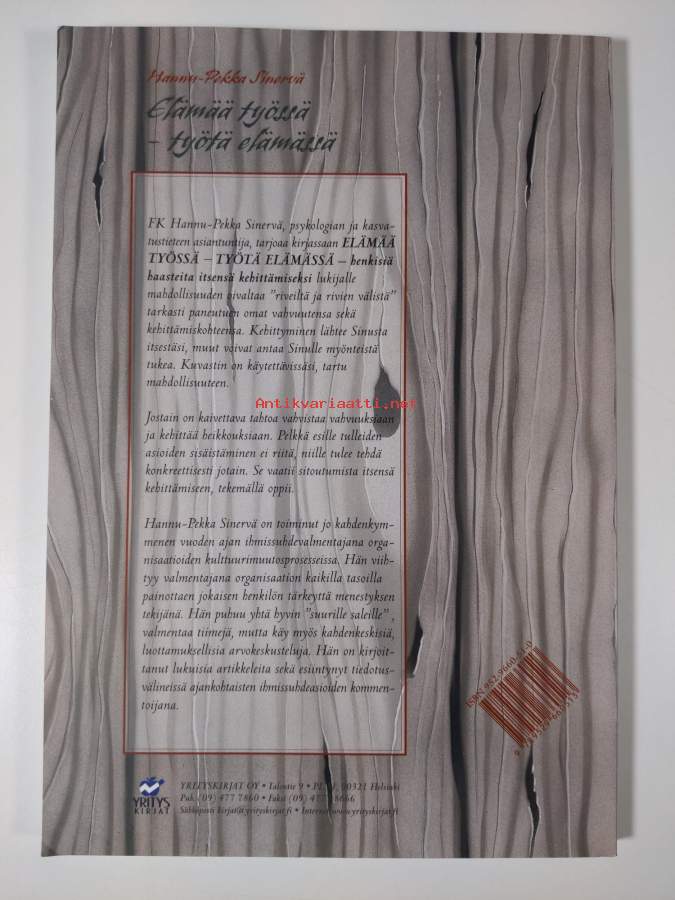 Hannu-Pekka Sinervä
Elämää työssä
– työtä elämässä
FK Hannu-Pekka Sinervä, psykologian ja kasva-
tustieteen asiantuntija, tarjoaa kirjassaan ELÄMÄÄ
TYÖSSÄ – TYÖTÄ ELÄMÄSSÄ – henkisiä
haasteita itsensä kehittämiseksi lukijalle
mahdollisuuden oivaltaa "riveiltä ja rivien välistä"
tarkasti paneutuen omat vahvuutensa sekä
kehittämiskohteensa. Kehittyminen lähtee Sinusta
itsestäsi, muut voivat antaa Sinulle myönteistä
tukea. Kuvastin on käytettävissäsi, tartu
mahdollisuuteen.
Antikvariaatti.net
Jostain on kaivettava tahtoa vahvistaa vahvuuksiaan
ja kehittää heikkouksiaan. Pelkkä esille tulleiden
asioiden sisäistäminen ei riitä, niille tulee tehdä
konkreettisesti jotain. Se vaatii sitoutumista itsensä
kehittämiseen, tekemällä oppii.
Hannu-Pekka Sinervä on toiminut jo kahdenkym-
menen vuoden ajan ihmissuhdevalmentajana orga-
nisaatioiden kulttuurimuutosprosesseissa. Hän viih-
tyy valmentajana organisaation kaikilla tasoilla
painottaen jokaisen henkilön tärkeyttä menestyksen
tekijänä. Hän puhuu yhtä hyvin "suurille saleille" ,
valmentaa tiimejä, mutta käy myös kahdenkeskisiä,
luottamuksellisia arvokeskusteluja. Hän on kirjoit-
tanut lukuisia artikkeleita sekä esiintynyt tiedotus-
välineissä ajankohtaisten ihmissuhdeasioiden kommen-
toijana.
ISBN
YRITYS
KIRJAT
YRITYSKIRJAT OY • Talontie 9 • 00321 Helsinki
Puh. (09) 477 7860 • Faksi (09)
Sähköposti kirjat@yrityskirjat.fi • Internet www.yrityskirjat.fi